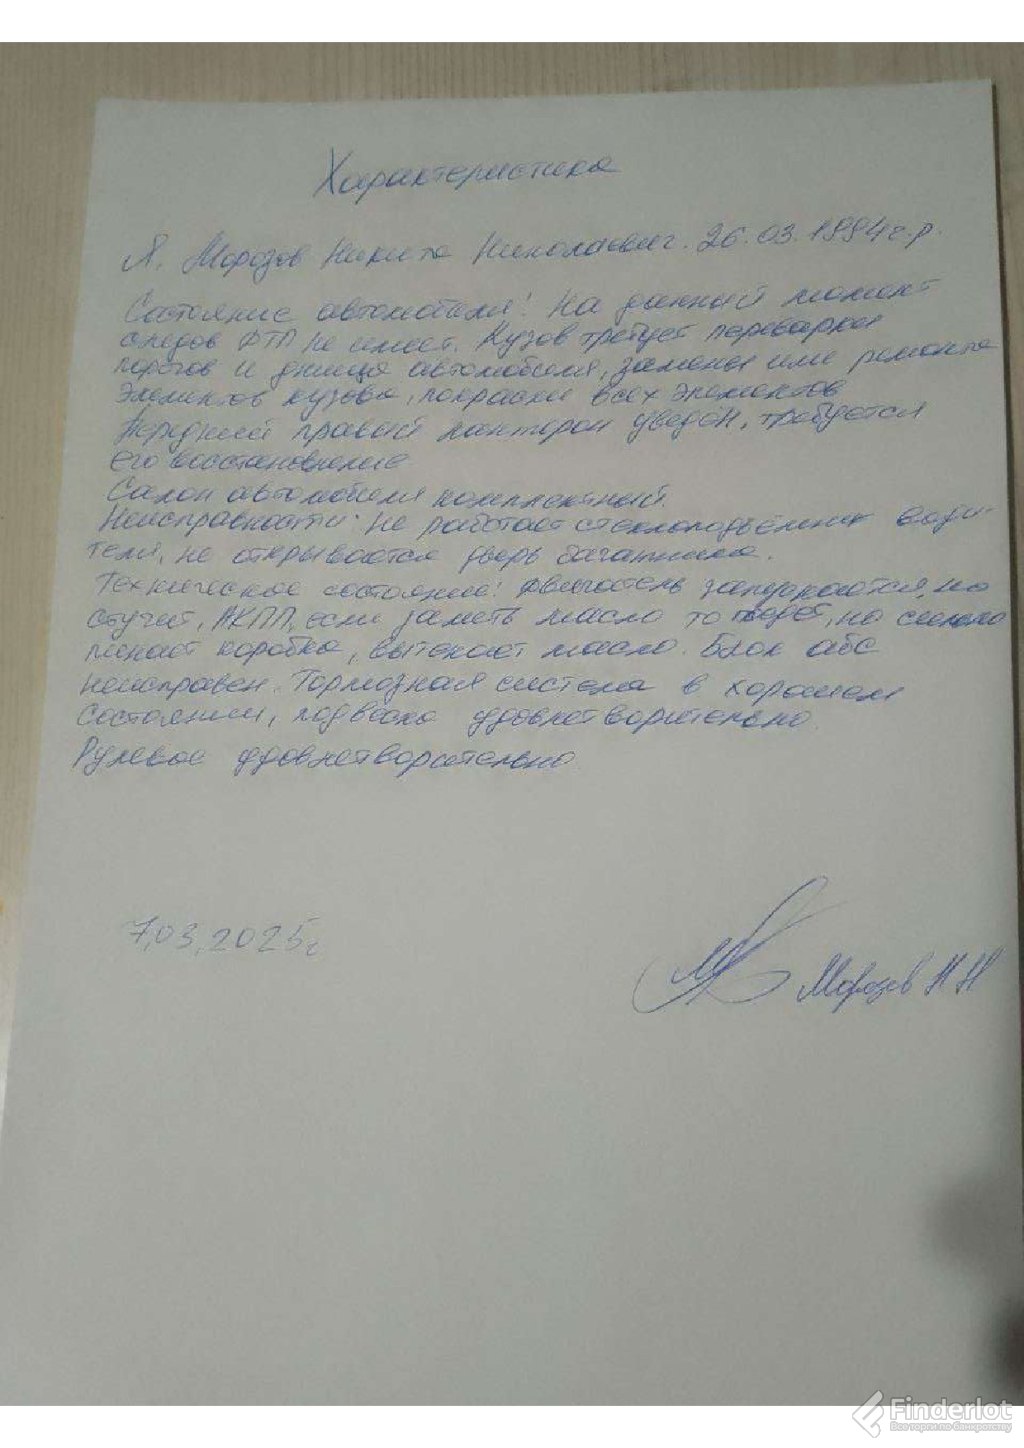 Характеристика
Я. Морозов Никита Николаевич. 26.03.1994г.р.
Состояние автомобиля: На данный момент
следов ДТП не имеет. Кузов требует переварки
порогов и днища автомобиля, замены или ремонта
элементов кузова, покраски всех элементов
Передний правый лонжерон уведён, требуется
его восстановление
Салон автомобиля комплектный.
Неисправности: Не работает стеклоподъёмник води-
теля, не открывается дверь багажника.
Техническое состояние: двигатель запускается, но
стучит, АКПП, если залить масло то едет, но сильно
пинает коробка, вытекает масло. Блок абс
неисправен. Тормозная система в хорошем
состоянии, подвеска удовлетворительно.
Рулевое удовлетворительно
7.03.2025г
Морозов Н Н
Finderlot
Все торги по банкротству